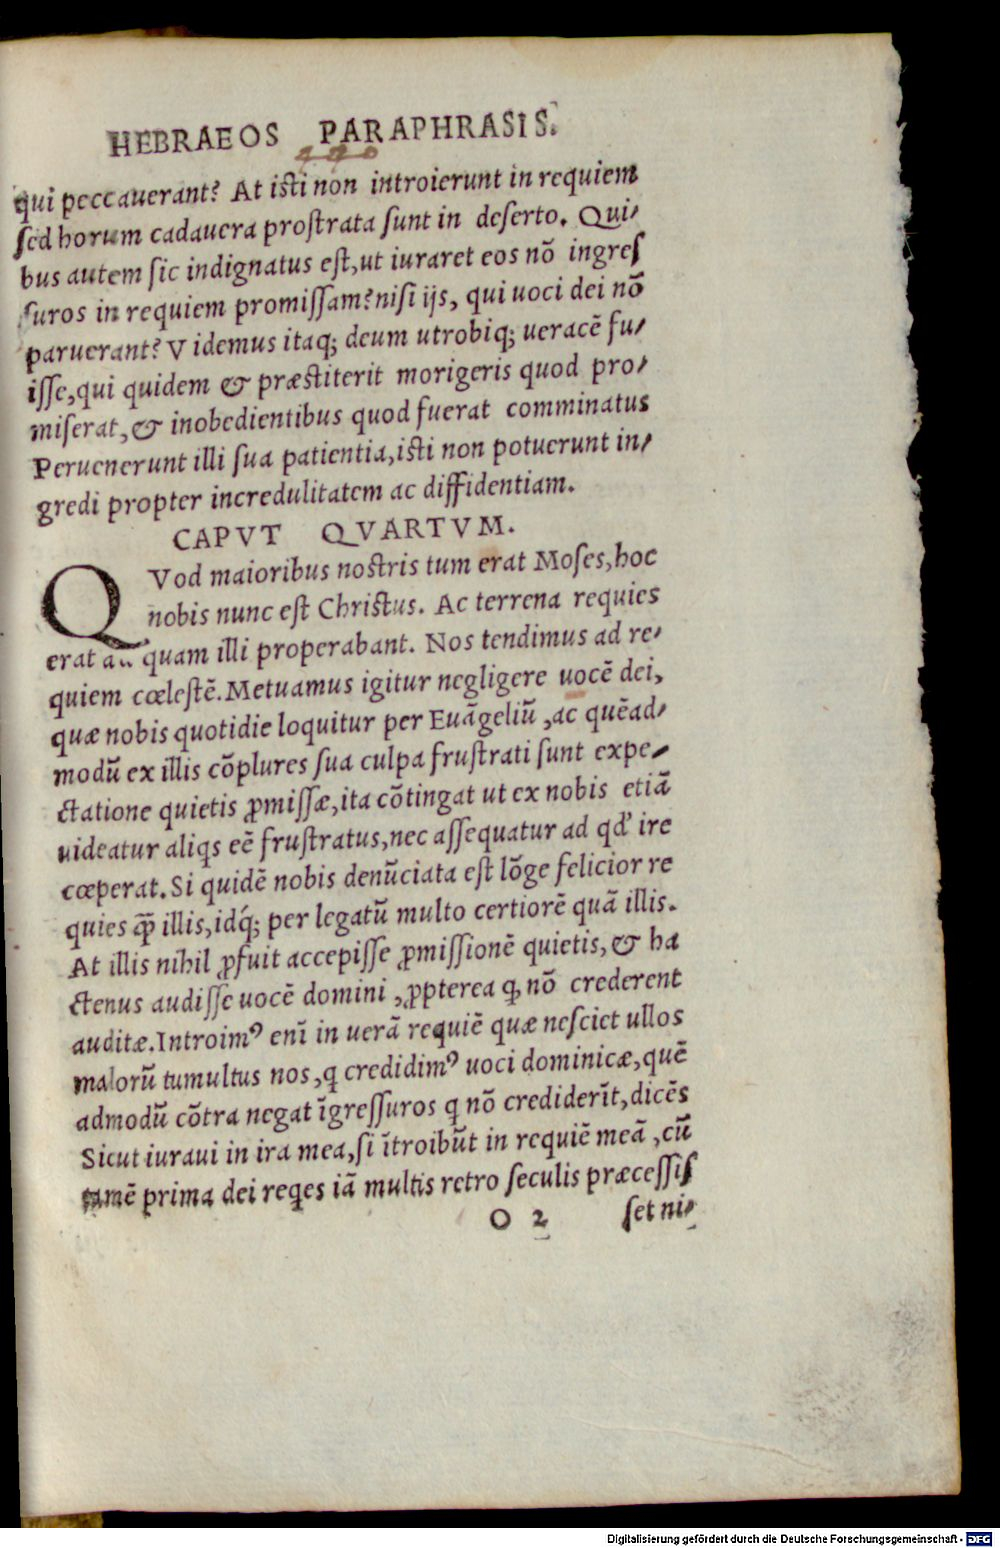 HEBRAEOS PARAPHRASIS.
qui peccauerant? At isti non introierunt in requiem
sed horum cadauera prostrata sunt in deserto. Qui/
bus autem sic indignatus est, ut iuraret eos nō ingres
suros in requiem promissam? nisi ijs, qui uoci dei nō
paruerant? Videmus itaq; deum utrobiq; ueracē fu/
isse, qui quidem & præstiterit morigeris quod pro/
miserat, & inobedientibus quod fuerat comminatus
Peruenerunt illi sua patientia, isti non potuerunt in/
gredi propter incredulitatem ac diffidentiam.
CAPVT QVARTVM.
QVod maioribus nostris tum erat Moses, hoc
nobis nunc est Christus. Ac terrena requies
erat ad quam illi properabant. Nos tendimus ad re/
quiem cœlestē. Metuamus igitur negligere uocē dei,
quæ nobis quotidie loquitur per Euāgeliū, ac quēad/
modū ex illis cōplures sua culpa frustrati sunt expe/
ctatione quietis ꝓmissæ, ita cōtingat ut ex nobis etiā
uideatur aliqs eē frustratus, nec assequatur ad qđ ire
cœperat. Si quidē nobis denūciata est lōge felicior re
quies q̄ꝑ illis, idq́; per legatū multo certiorē quā illis.
At illis nihil ꝓfuit accepisse ꝓmissionē quietis, & ha
ctenus audisse uocē domini, ꝓpterea ꝙ nō crederent
auditæ. Introimꝰ enī in uerā requiē quæ nesciet ullos
malorū tumultus nos, q credidimꝰ uoci dominicæ, quē
admodū cōtra negat īgressuros q nō crediderīt, dicēs
Sicut iuraui in ira mea, si ītroibūt in requiē meā, cū
tamē prima dei reqes iā multis retro seculis præcessis
O 2 set ni/
Digitalisierung gefördert durch die Deutsche Forschungsgemeinschaft - DFG